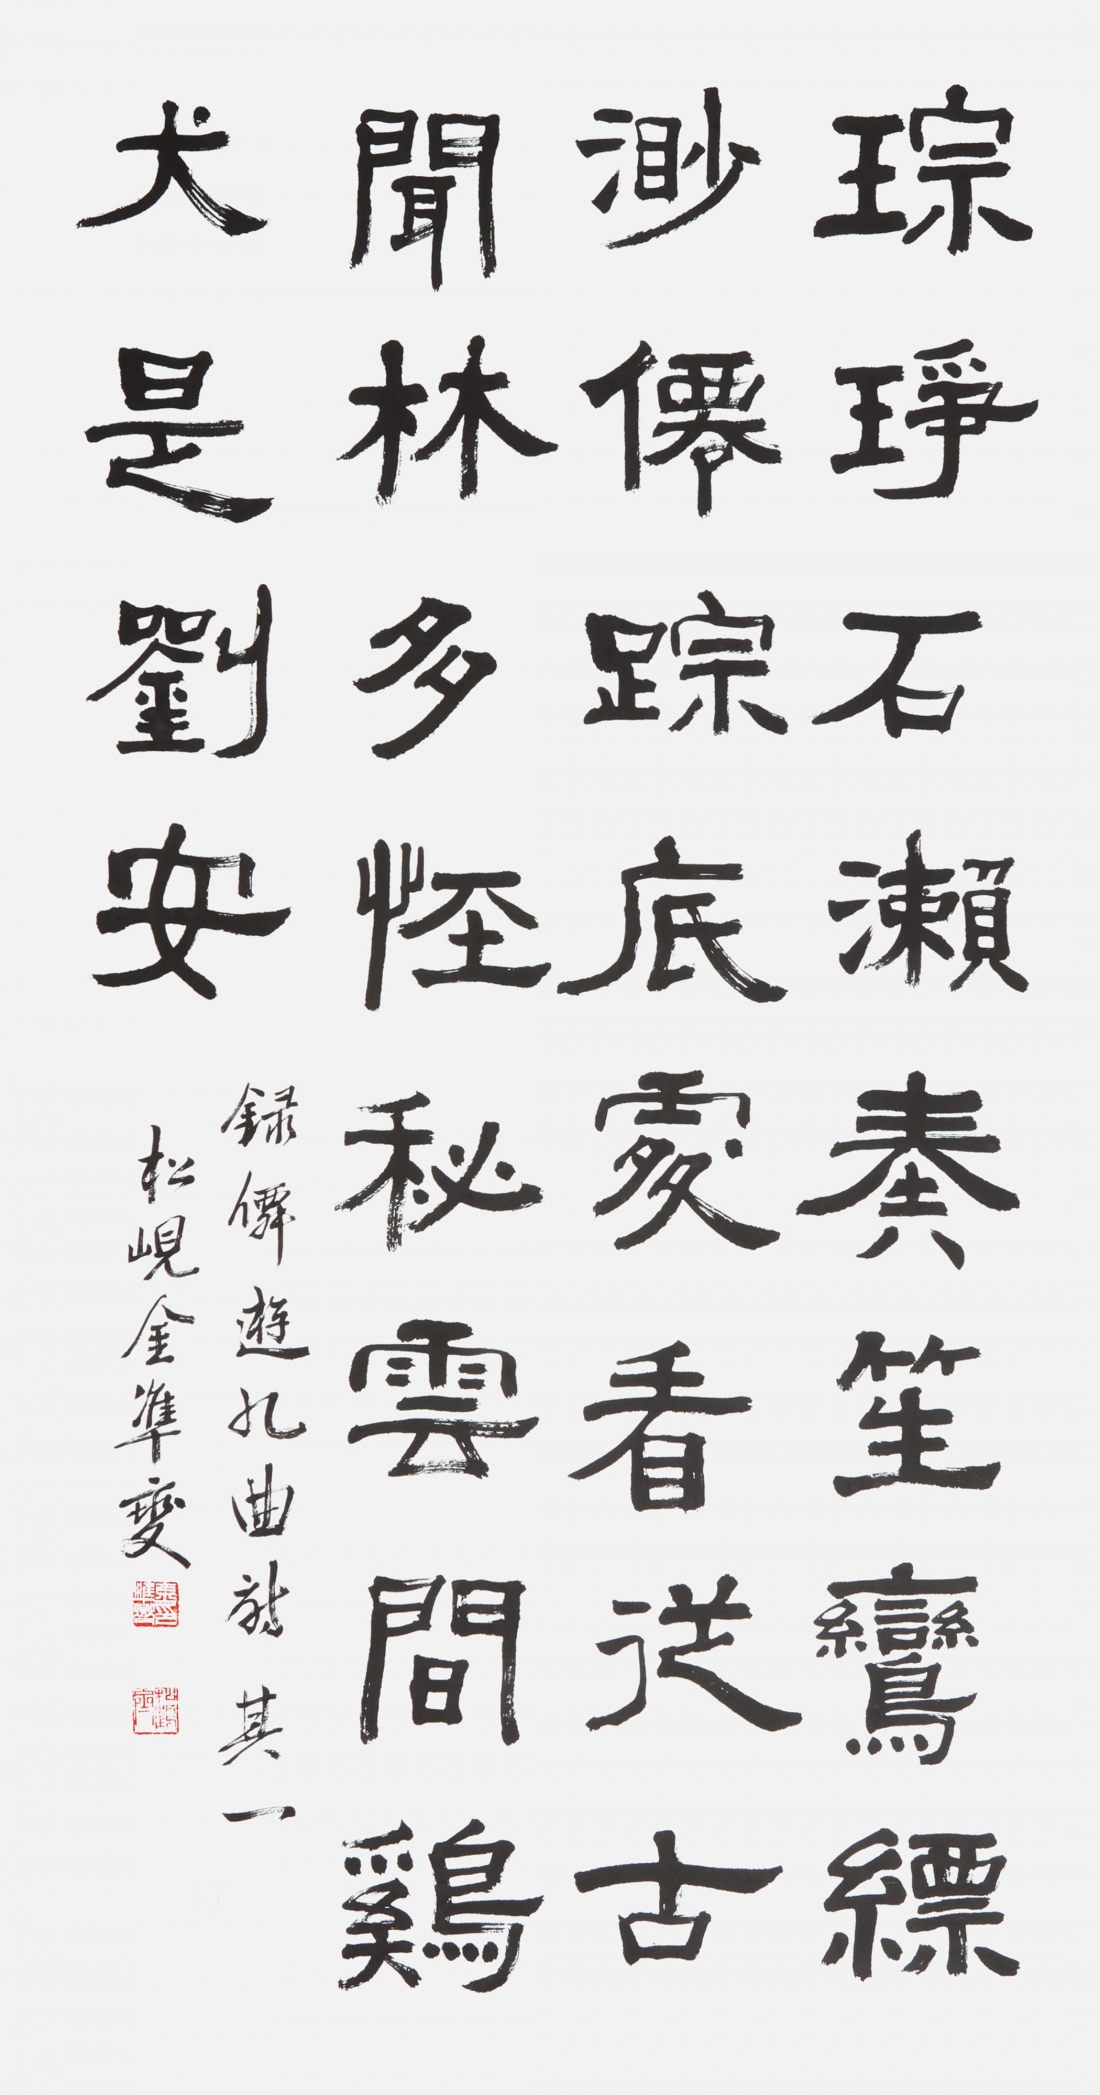 琮琤石瀨奏笙鸞縹
渺僊踪底處看從古
聞林多怪秘雲間鷄
犬是劉安
錄僊遊九曲詩 其一
松峴金準燮